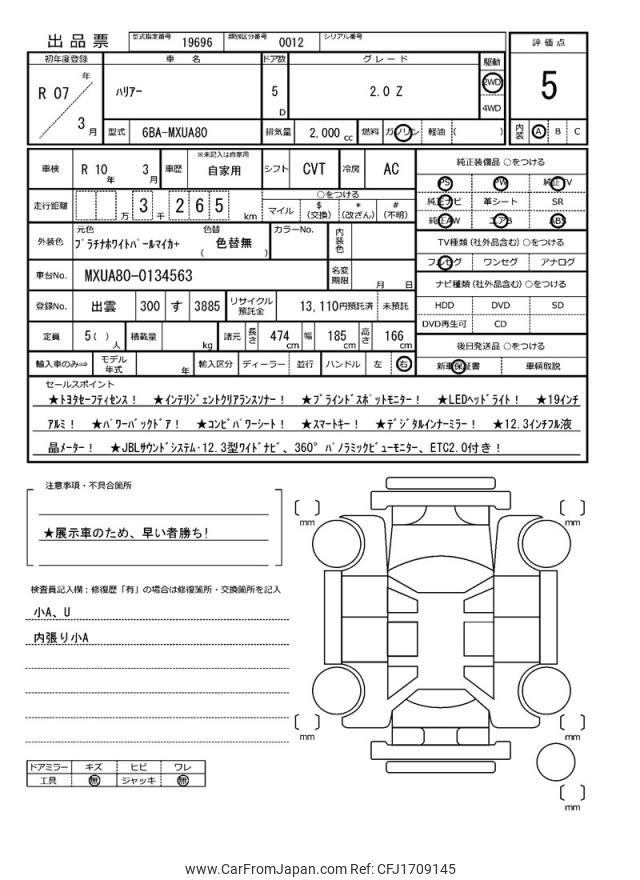 出品票 型式指定番号 19696 類別区分番号 0012 シリアル番号
評価点
5
内装 A B C
初年度登録 車名 ドア数 グレード 駆動
R 07 年 3 月
ハリアー
5 D
2.0 Z
2WD
4WD
型式 6BA-MXUA80 排気量 2,000 cc 燃料 ガソリン 軽油 ( )
車検 R 10 年 3 月 車歴 ※未記入は自家用 自家用 シフト CVT 冷房 AC
走行距離 万 3 千 2 6 5 km
○をつける
マイル $(交換) *(改ざん) #(不明)
外装色 元色 プラチナホワイトパールマイカ+ 色替 ( 色替無 ) カラーNo. 内装色
車台No. MXUA80-0134563 名変期限 月 日
登録No. 出雲 300 す 3885 リサイクル預託金 13,110円預託済 未預託
定員 5( )人 積載量 kg 諸元 長さ 474 cm 幅 185 cm 高さ 166 cm
輸入車のみ⇒ モデル年式 年 輸入区分 ディーラー 並行 ハンドル 左 右
純正装備品 ○をつける
PS PW 純正TV
純正ナビ 革シート SR
純正AW エアB ABS
TV種類(社外品含む) ○をつける
フルセグ ワンセグ アナログ
ナビ種類(社外品含む) ○をつける
HDD DVD SD
DVD再生可 CD
後日発送品 ○をつける
新車保証書 車輌取説
セールスポイント
★トヨタセーフティセンス! ★インテリジェントクリアランスソナー! ★ブラインドスポットモニター! ★LEDヘッドライト! ★19インチ
アルミ! ★パワーバックドア! ★コンビパワーシート! ★スマートキー! ★デジタルインナーミラー! ★12.3インチフル液
晶メーター! ★JBLサウンドシステム・12.3型ワイドナビ、360°パノラミックビューモニター、ETC2.0付き!
注意事項・不具合箇所
★展示車のため、早い者勝ち!
検査員記入欄:修復歴「有」の場合は修復箇所・交換箇所を記入
小A、U
内張り小A
ドアミラー キズ ヒビ ワレ
工具 無 ジャッキ 無
mm
mm
mm
mm
mm
www.CarFromJapan.com Ref: CFJ1709145